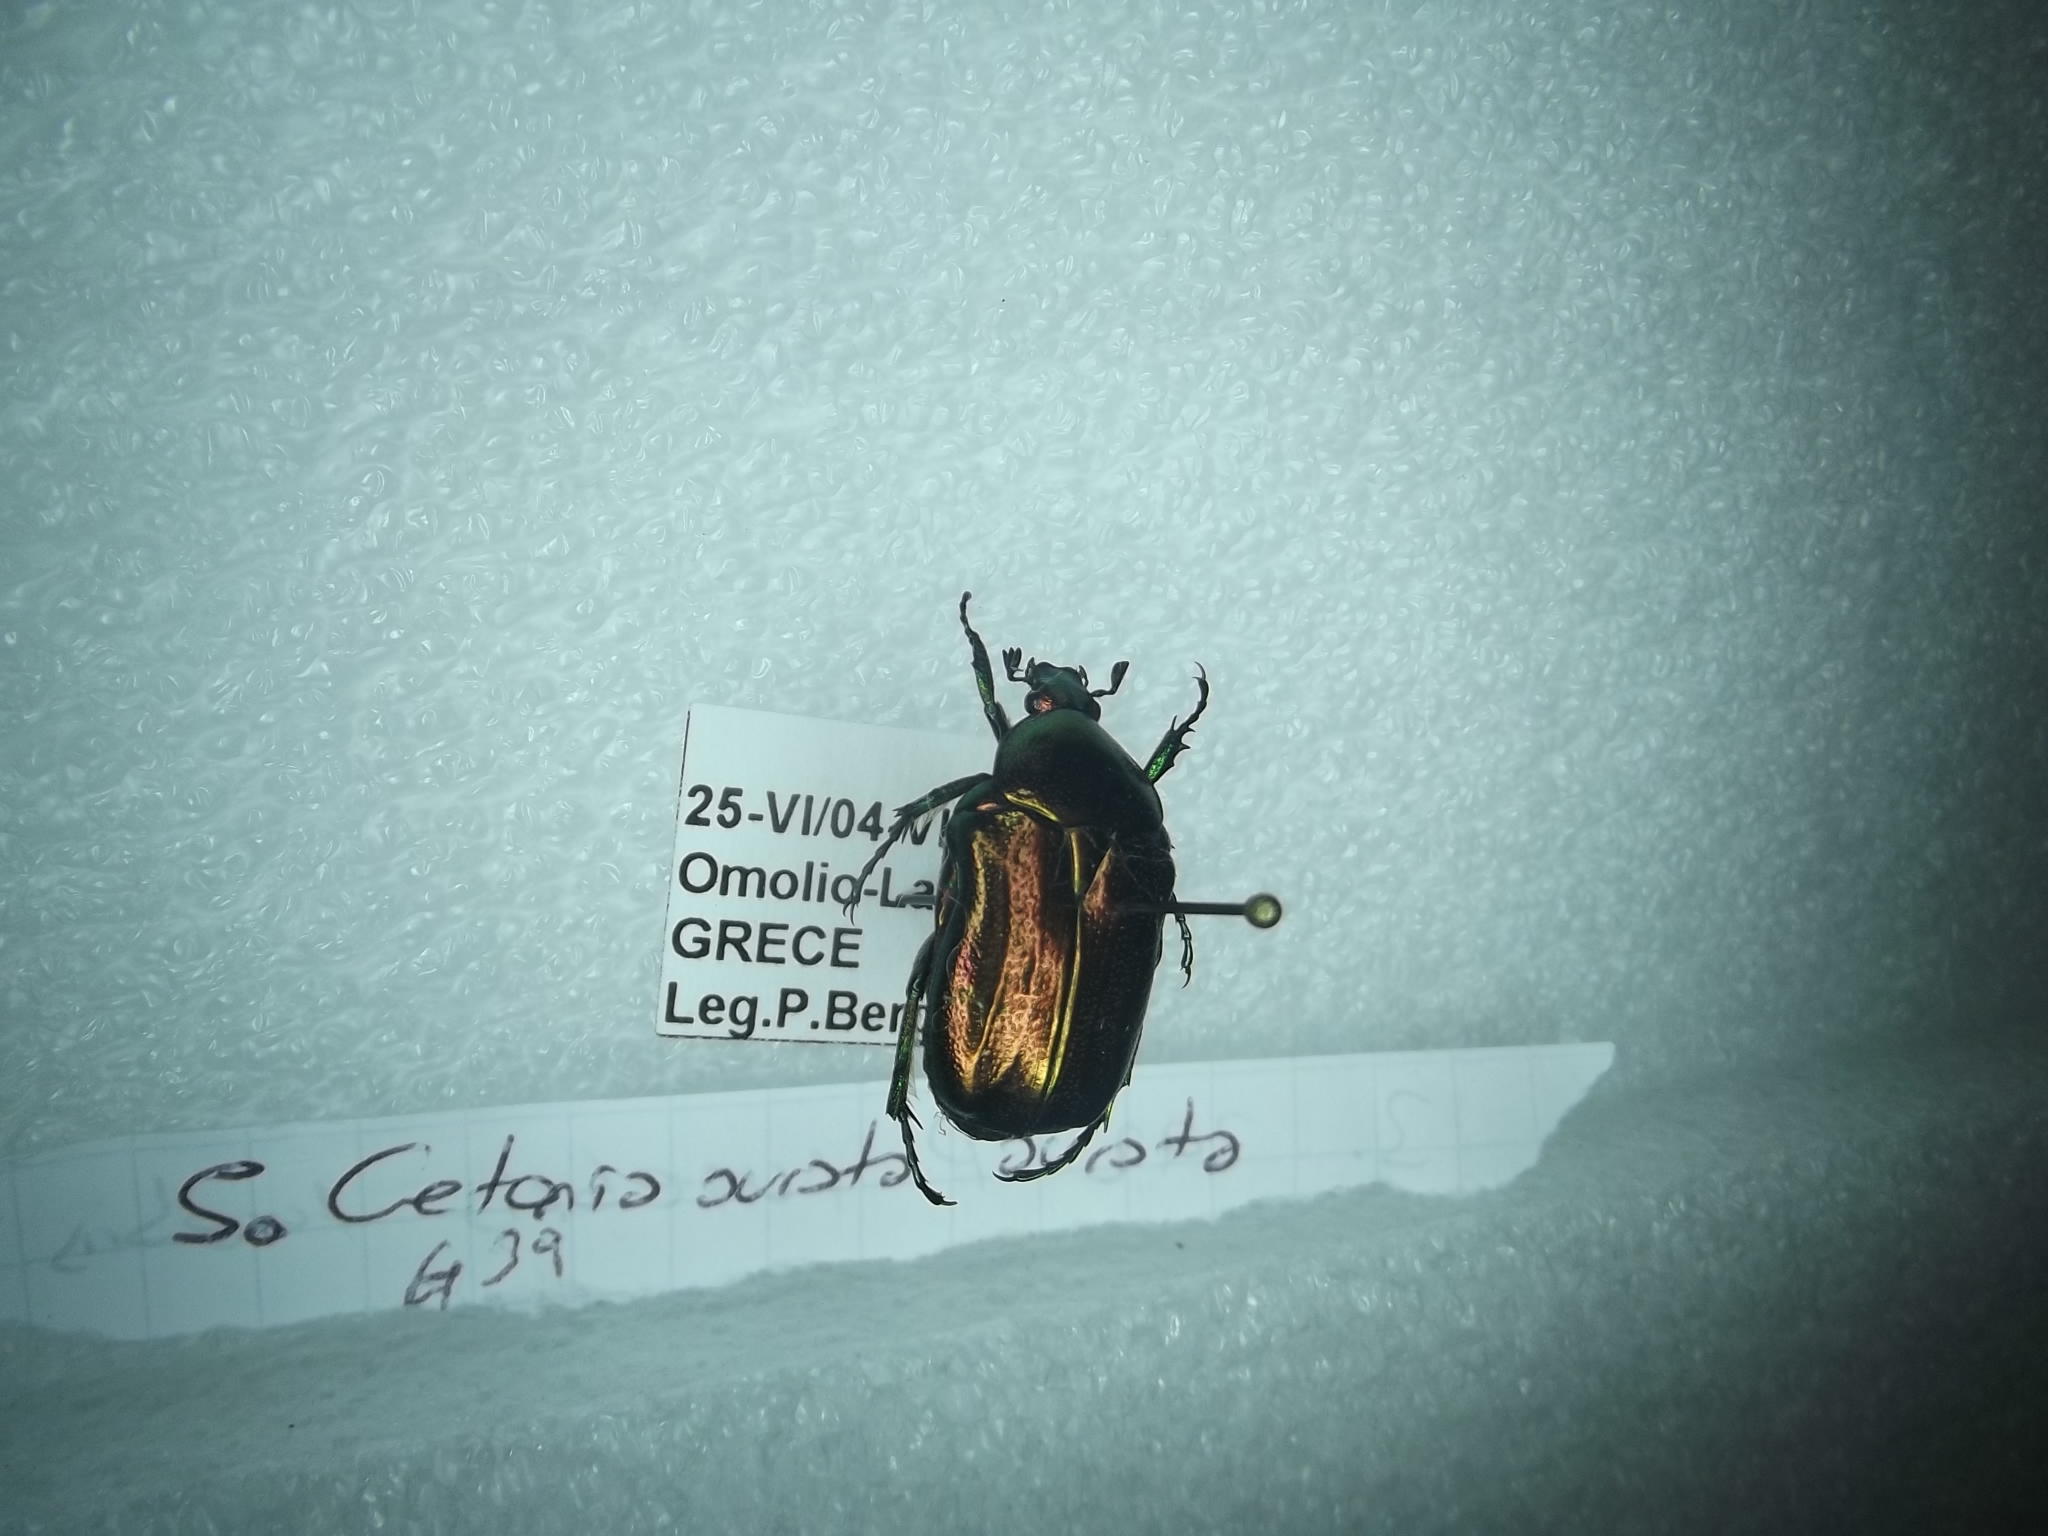 25-VI/04-VI
Omolio-La
GRECE
Leg.P.Ber
S. Cetonia aurata aurata
G39